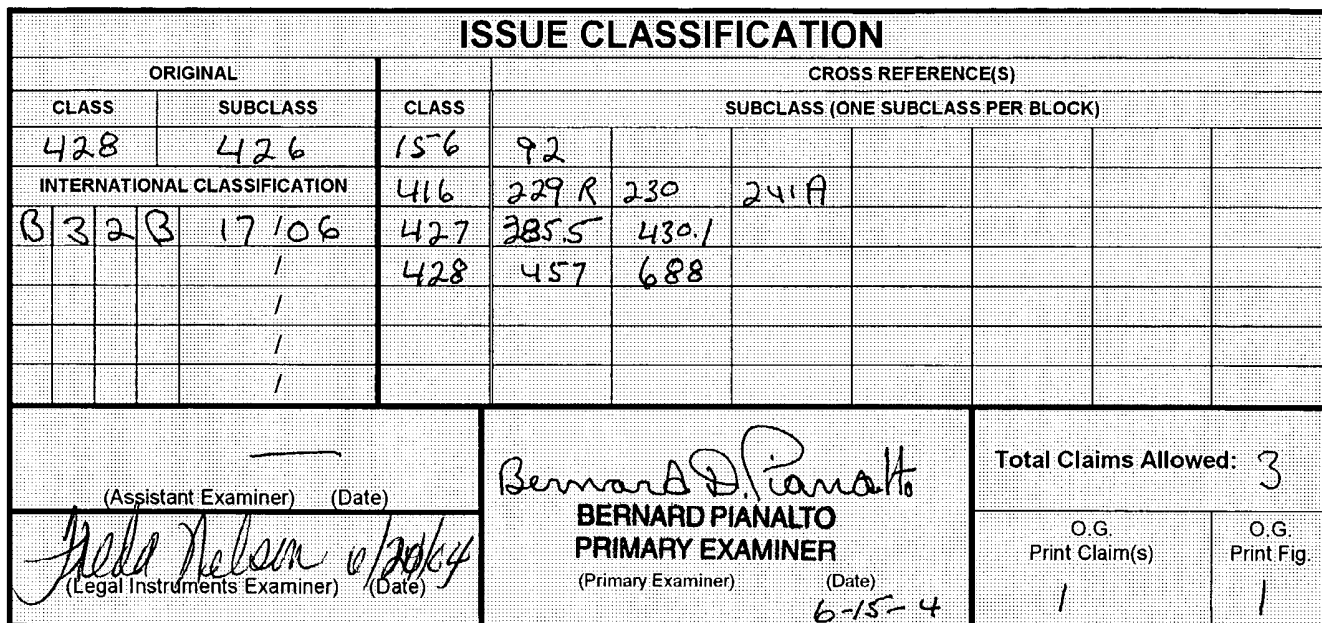 ISSUE CLASSIFICATION
ORIGINAL CROSS REFERENCE(S)
CLASS SUBCLASS CLASS SUBCLASS (ONE SUBCLASS PER BLOCK)
428 426 156 92
INTERNATIONAL CLASSIFICATION 416 229 R 230 241A
B 3 2 B 17 / 06 427 385.5 430.1
/ 428 457 688
/
/
/
(Assistant Examiner) (Date)
Nelson 6/20/04
(Legal Instruments Examiner) (Date)
Bernard D. Pianalto
BERNARD PIANALTO
PRIMARY EXAMINER
(Primary Examiner) (Date)
6-15-4
Total Claims Allowed: 3
O.G. Print Claim(s) O.G. Print Fig.
1 1